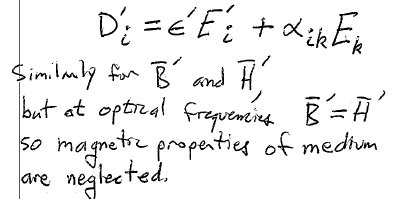 D'ᵢ = ε'E'ᵢ + αᵢₖEₖ
Similarly for B̅' and H̅'
but at optical frequencies B̅' = H̅'
so magnetic properties of medium
are neglected.